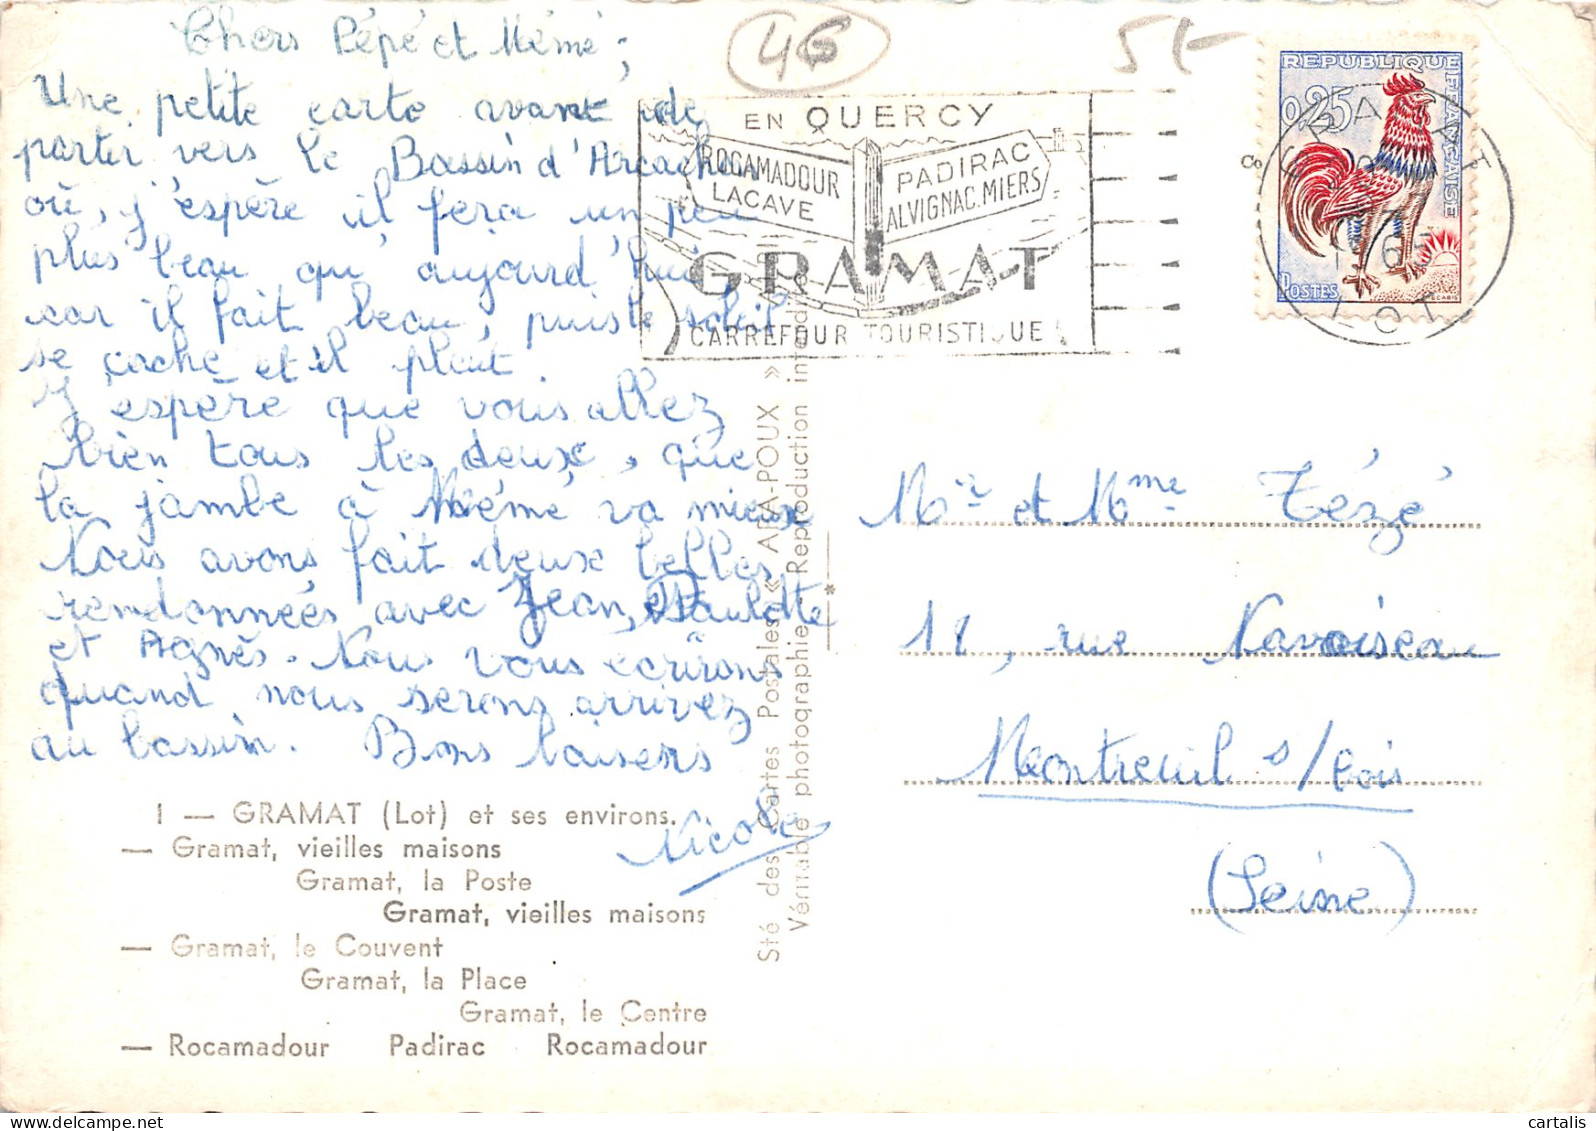 Chers Pépé et Mémé ;
Une petite carte avant de
partir vers le Bassin d'Arcachon
où, j'espère il fera un peu
plus beau qu'aujourd'hui,
car il fait beau, puis le soleil
se cache et il pleut
J'espère que vous allez
bien tous les deux, que
la jambe à Mémé va mieux
Nous avons fait deux belles
rendonnées avec Jean, Paulette
et Agnès. Nous vous écrirons
quand nous serons arrivez
au bassin. Bons baisers
Nicole
46
5€
EN QUERCY
ROCAMADOUR
LACAVE
PADIRAC
ALVIGNAC.MIERS
GRAMAT
CARREFOUR TOURISTIQUE
REPUBLIQUE FRANÇAISE
0,25
POSTES
DECARIS
GRAMAT
LOT
Mr et Mme Tézé
11, rue Navoiseau
Montreuil s/bois
(Seine)
I — GRAMAT (Lot) et ses environs.
— Gramat, vieilles maisons
Gramat, la Poste
Gramat, vieilles maisons
— Gramat, le Couvent
Gramat, la Place
Gramat, le Centre
— Rocamadour Padirac Rocamadour
Sté des Cartes Postales « APA-POUX »
Véritable photographie - Reproduction interdite
cartalis